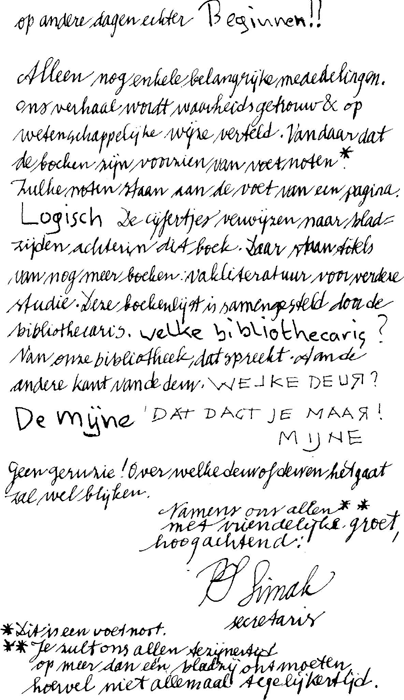 op andere dagen echter Beginnen!!
Alleen nog enkele belangrijke mededelingen.
ons verhaal wordt waarheidsgetrouw & op
wetenschappelijke wijze verteld. Vandaar dat
de boeken zijn voorzien van voetnoten*.
Zulke noten staan aan de voet van een pagina.
Logisch De cijfertjes verwijzen naar blad=
zijden achterin dit boek. Daar staan titels
van nog meer boeken: vakliteratuur voor verdere
studie. Deze boekenlijst is samengesteld door de
bibliothecaris. welke bibliothecaris?
Van onze bibliotheek, dat spreekt. Aan de
andere kant van de deur. WELKE DEUR?
De Mijne 'DAT DACT JE MAAR!
MIJNE
Geen geruzie! Over welke deur of deuren het gaat
zal wel blijken.
Namens ons allen**
met vriendelijke groet,
hoogachtend:
Simak
secretaris
*Dit is een voetnoot.
**Je zult ons allen tezijnertijd
op meer dan één bladzij ontmoeten
hoewel niet allemaal tegelijkertijd.